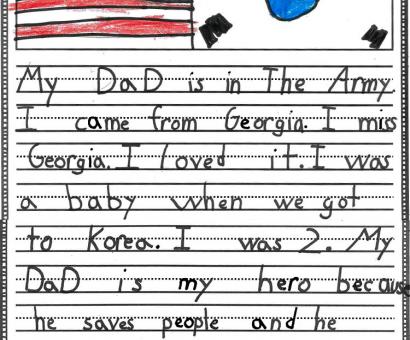 My DaD is in The Army.
I came from Georgia. I miss
Georgia. I loved it. I was
a baby when we got
to Korea. I was 2. My
DaD is my hero because
he saves people and he